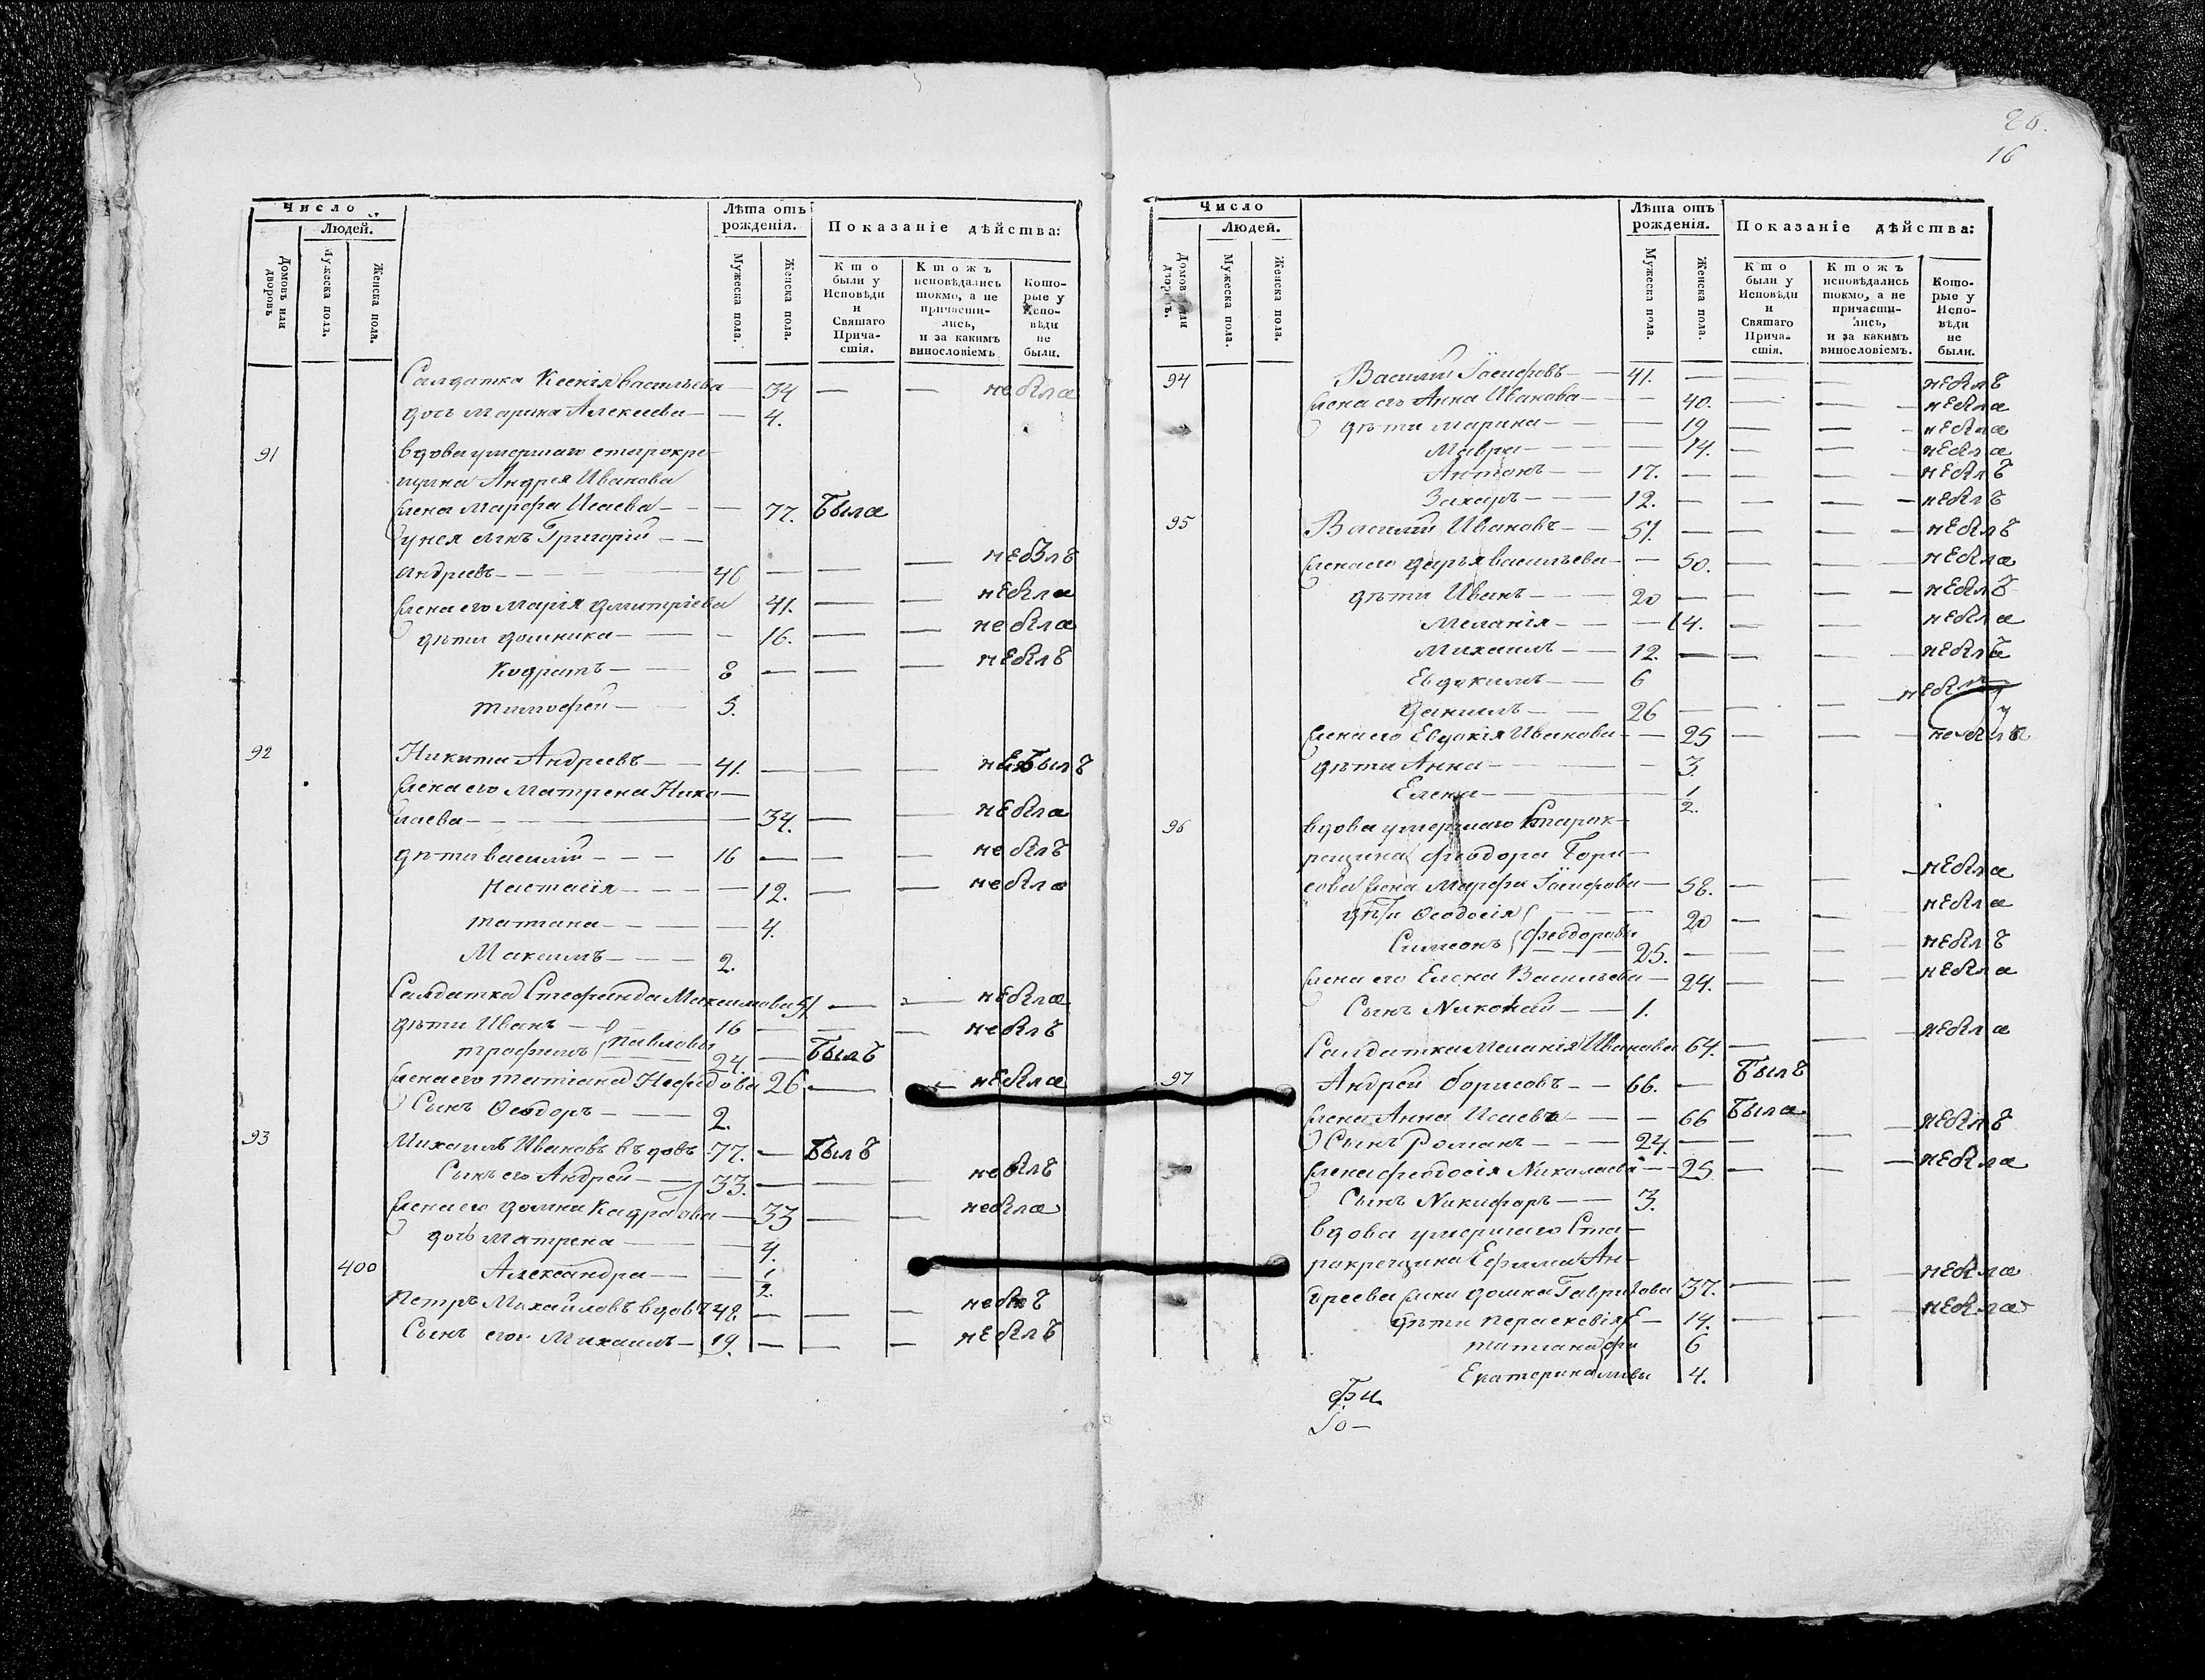 Число
Людей.
Домовъ или дворовъ
Мужеска пола.
Женска пола.
Лѣта отъ рожденія.
Мужеска пола.
Женска пола.
Показаніе дѣйства:
Кто были у Исповѣди и Святаго Причастія.
Ктожъ исповѣдались токмо, а не причастились, и за какимъ винословіемъ
Которые у Исповѣди не были.
Салдатка Ксенія Васильева — 34 — — не была
дочь Марина Алексиева — — 4.
91 вдова умершаго старокре
щина Андрея Иванова
жена Марфа Исаева — — 77. Была
у нея сынъ Григорій — —
Андреевъ — — 46 — — — небылъ
жена его Марія Дмитріева 41. — — небыла
дѣти Домника — — 16. — — не была
Кодратъ — — 8 — — — небылъ
Тимофей — 5.
92 Никита Андреевъ — — 41. — — — не былъ
жена его Матрена Нико—
лаева — — — — 34. — — небыла
дѣти Василій — — — 16 — — — не былъ
Настасія — — — — 12. — — не была
Татиана — — — 4.
Максимъ — — — 2.
Салдатка Стефанида Максимова 51 — — небыла
дѣти Иванъ — — 16 — — — небылъ
Трофимъ Павловы 24. — Былъ
жена его Татіана Нефедова 26 — — небыла
Сынъ Ѳеодоръ — — — 2.
93 Михаилъ Ивановъ вдовъ 77. — Былъ
Сынъ его Андрей — — 33. — — — небылъ
жена его Домна Кадратова — 33 — — небыла
дочь Матрена — — 4.
400 Александра — — — 1/2.
Петръ Михайловъ вдовъ 48. — — — небылъ
Сынъ его Михаилъ — 19. — — — небылъ
80.
16
Число
Людей.
Домовъ или дворовъ.
Мужеска пола.
Женска пола.
Лѣта отъ рожденія.
Мужеска пола.
Женска пола.
Показаніе дѣйства:
Кто были у Исповѣди и Святаго Причастія.
Ктожъ исповѣдались токмо, а не причастились, и за какимъ винословіемъ.
Которые у Исповѣди не были.
94 Василій Іосифовъ — — 41. — — — небылъ
жена его Анна Иванова — — 40. — — небыла
дѣти Марина — — — 19 — — небыла
Мавра — — — 14. — — небыла
Антонъ — — 17. — — — небылъ
Захаръ — — — 12. — — — небылъ
95 Василій Ивановъ — — 51. — — — небылъ
жена его Дарья Васильева — — 50. — — небыла
дѣти Иванъ — — — 20 — — — небылъ
Меланія — — — 14. — — небыла
Михаилъ — — 12. — — — небылъ
Евдокимъ — — 6
Данилъ — — 26 — — — небылъ
жена его Евдокія Иванова — — 25 — — небыла
дѣти Анна — — — 3.
Елена — — — 1/2.
96 вдова умершаго Старок—
ращина Феодора Бори—
сова жена Марфа Іосифова — 58. — — небыла
дѣти Ѳеодосія — — — 20 — — небыла
Симеонъ Феодоровы 25. — — — небылъ
жена его Елена Васильева — 24. — — небыла
Сынъ Николай — — 1.
Салдатка Меланія Иванова 64. — — небыла
97 Андрей Борисовъ — — 66. — Былъ
жена Анна Исаева — — 66 Была
Сынъ Романъ — — — 24. — — — небылъ
жена Феодосія Николаева — — 25. — — небыла
Сынъ Никифоръ — — 3.
вдова умершаго Ста—
рокрещина Ефима Ан—
дреева жена Домна Гаврилова 37. — — небыла
дѣти Пераскевія Е — 14. — — небыла
Татиана фи 6
Екатерина мовы 4.